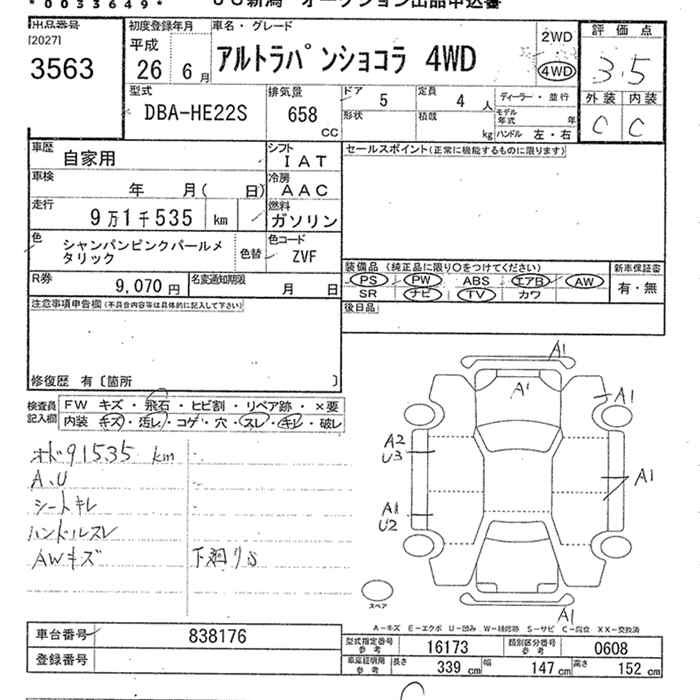 *0033649*
JU新潟 オークション出品申込書
出品番号
[2027]
3563
初度登録年月
平成
26 6月
車名・グレード
アルトラパンショコラ 4WD
2WD
4WD
評価点
3.5
外装 内装
C C
型式
DBA-HE22S
排気量
658
CC
ドア
5
定員
4 人
形状
積載
kg
ディーラー・並行
モデル年式 年
ハンドル 左・右
車歴
自家用
シフト
IAT
車検
年 月( 日)
冷房
AAC
走行
9万1千535 km
燃料
ガソリン
色
シャンパンピンクパールメタリック
色替
色コード
ZVF
R券
9,070 円
名変通知期限
月 日
セールスポイント(正常に機能するものに限ります)
装備品 (純正品に限り○をつけてください)
PS PW ABS エアB AW
SR ナビ TV カワ
新車保証書
有・無
後日品
注意事項申告欄(不具合内容等は具体的に記入して下さい)
修復歴 有〔箇所 〕
検査員記入欄
FW キズ・飛石・ヒビ割・リペア跡・×要
内装 キズ・汚レ・コゲ・穴・スレ・キレ・破レ
オド91535 km
A、U
シートキレ
ハンドルスレ
AWキズ
下廻りS
A1
A1
A1
A2
U3
A1
A1
U2
A1
スペア
A-キズ E-エクボ U-凹み W-補修跡 S-サビ C-腐食 XX-交換済
車台番号
838176
登録番号
型式指定番号 参考
16173
類別区分番号 参考
0608
車庫証明用 参考
長さ 339 cm
幅 147 cm
高さ 152 cm